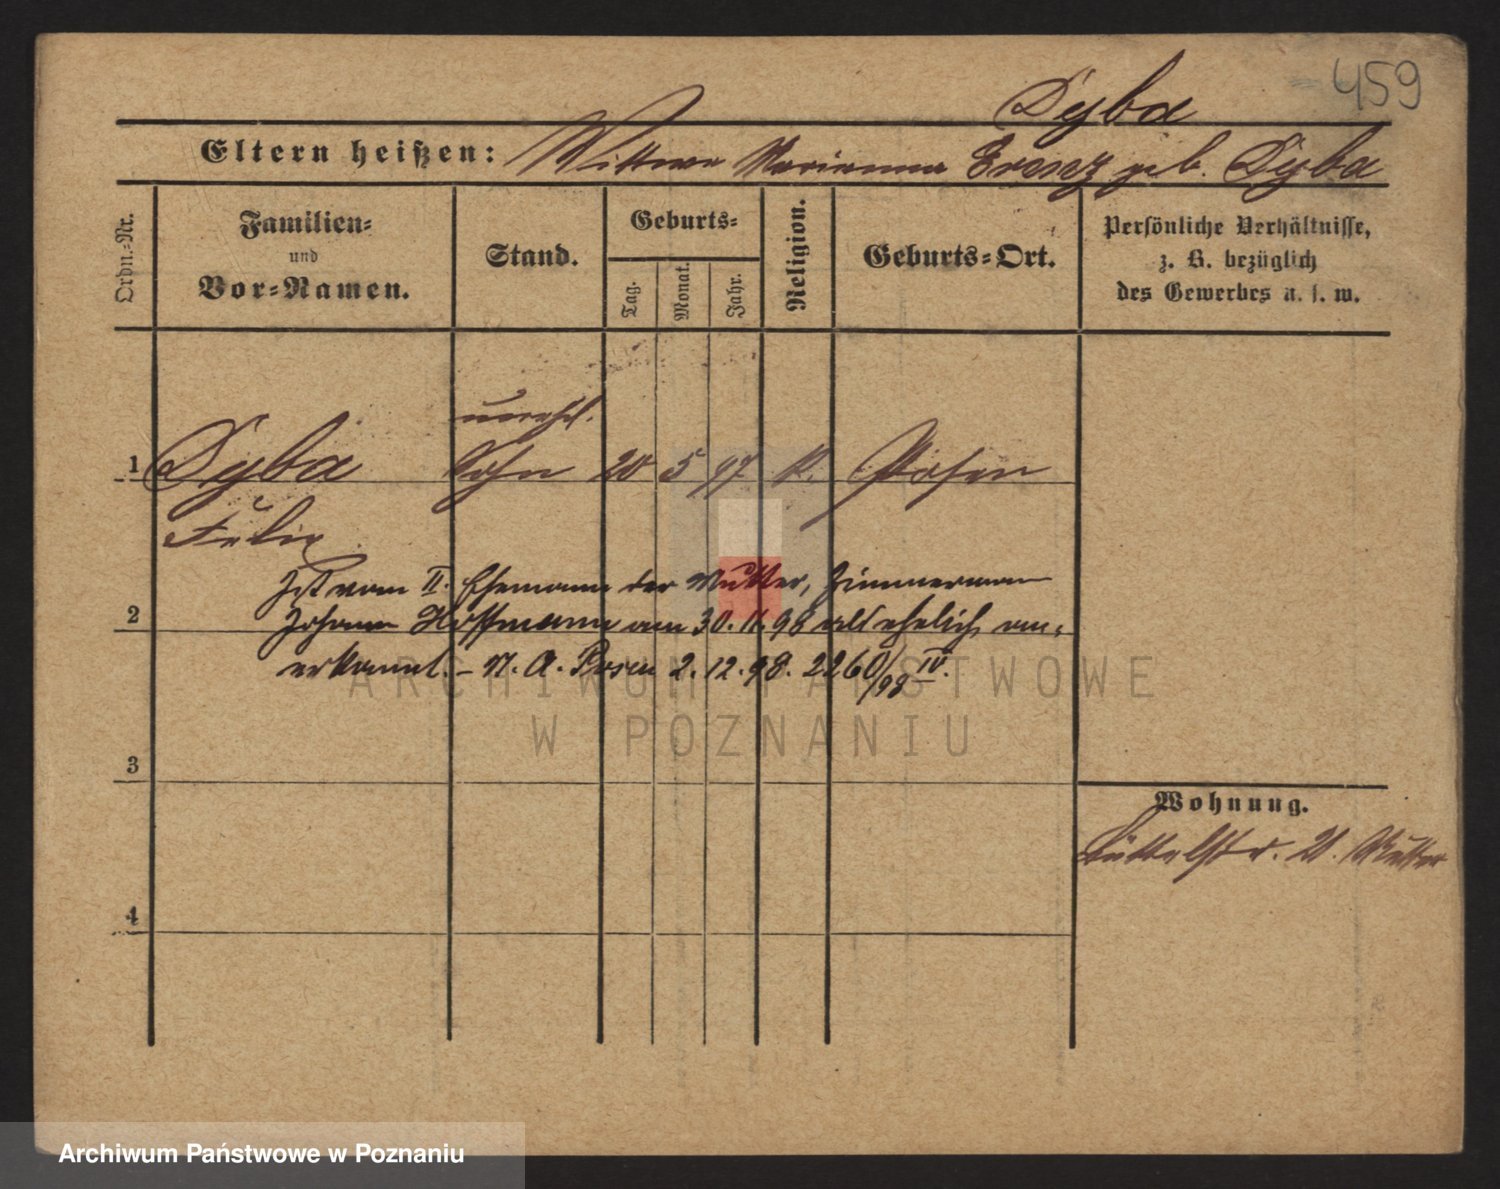 459
Dyba
Eltern heißen: Wittwe Marianna Franz geb. Dyba
Ordn.-Nr.
Familien-
und
Vor-Namen.
Stand.
Geburts-
Tag.
Monat.
Jahr.
Religion.
Geburts-Ort.
Persönliche Verhältnisse,
z. B. bezüglich
des Gewerbes u. s. w.
unehel.
1 Dyba Sohn 20 5 97 k. Posen
Felix
Ist vom II. Ehemann der Mutter, Zimmermann
2
Johann Hoffmann am 30.11.98 als ehelich an-
erkannt. – St. A. Posen 2.12.98. 2260/98 IV.
ARCHIWUM PAŃSTWOWE
W POZNANIU
3
Wohnung.
Büttelstr. 21. Mutter
4
Archiwum Państwowe w Poznaniu